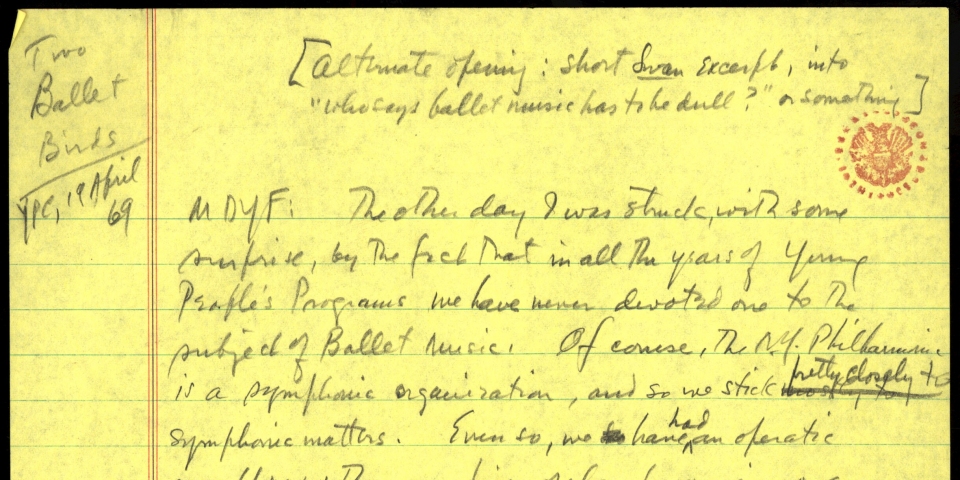 Two
Ballet
Birds
YPC, 19 April
69
[alternate opening: short Swan excerpt, into
"who says ballet music has to be dull?" or something]
MDYF: The other day I was struck, with some
surprise, by the fact that in all the years of Young
People's Programs we have never devoted one to the
subject of Ballet Music. Of course, the N.Y. Philharmonic
is a symphonic organization, and so we stick mostly to pretty closely to
symphonic matters. Even so, we have had an operatic